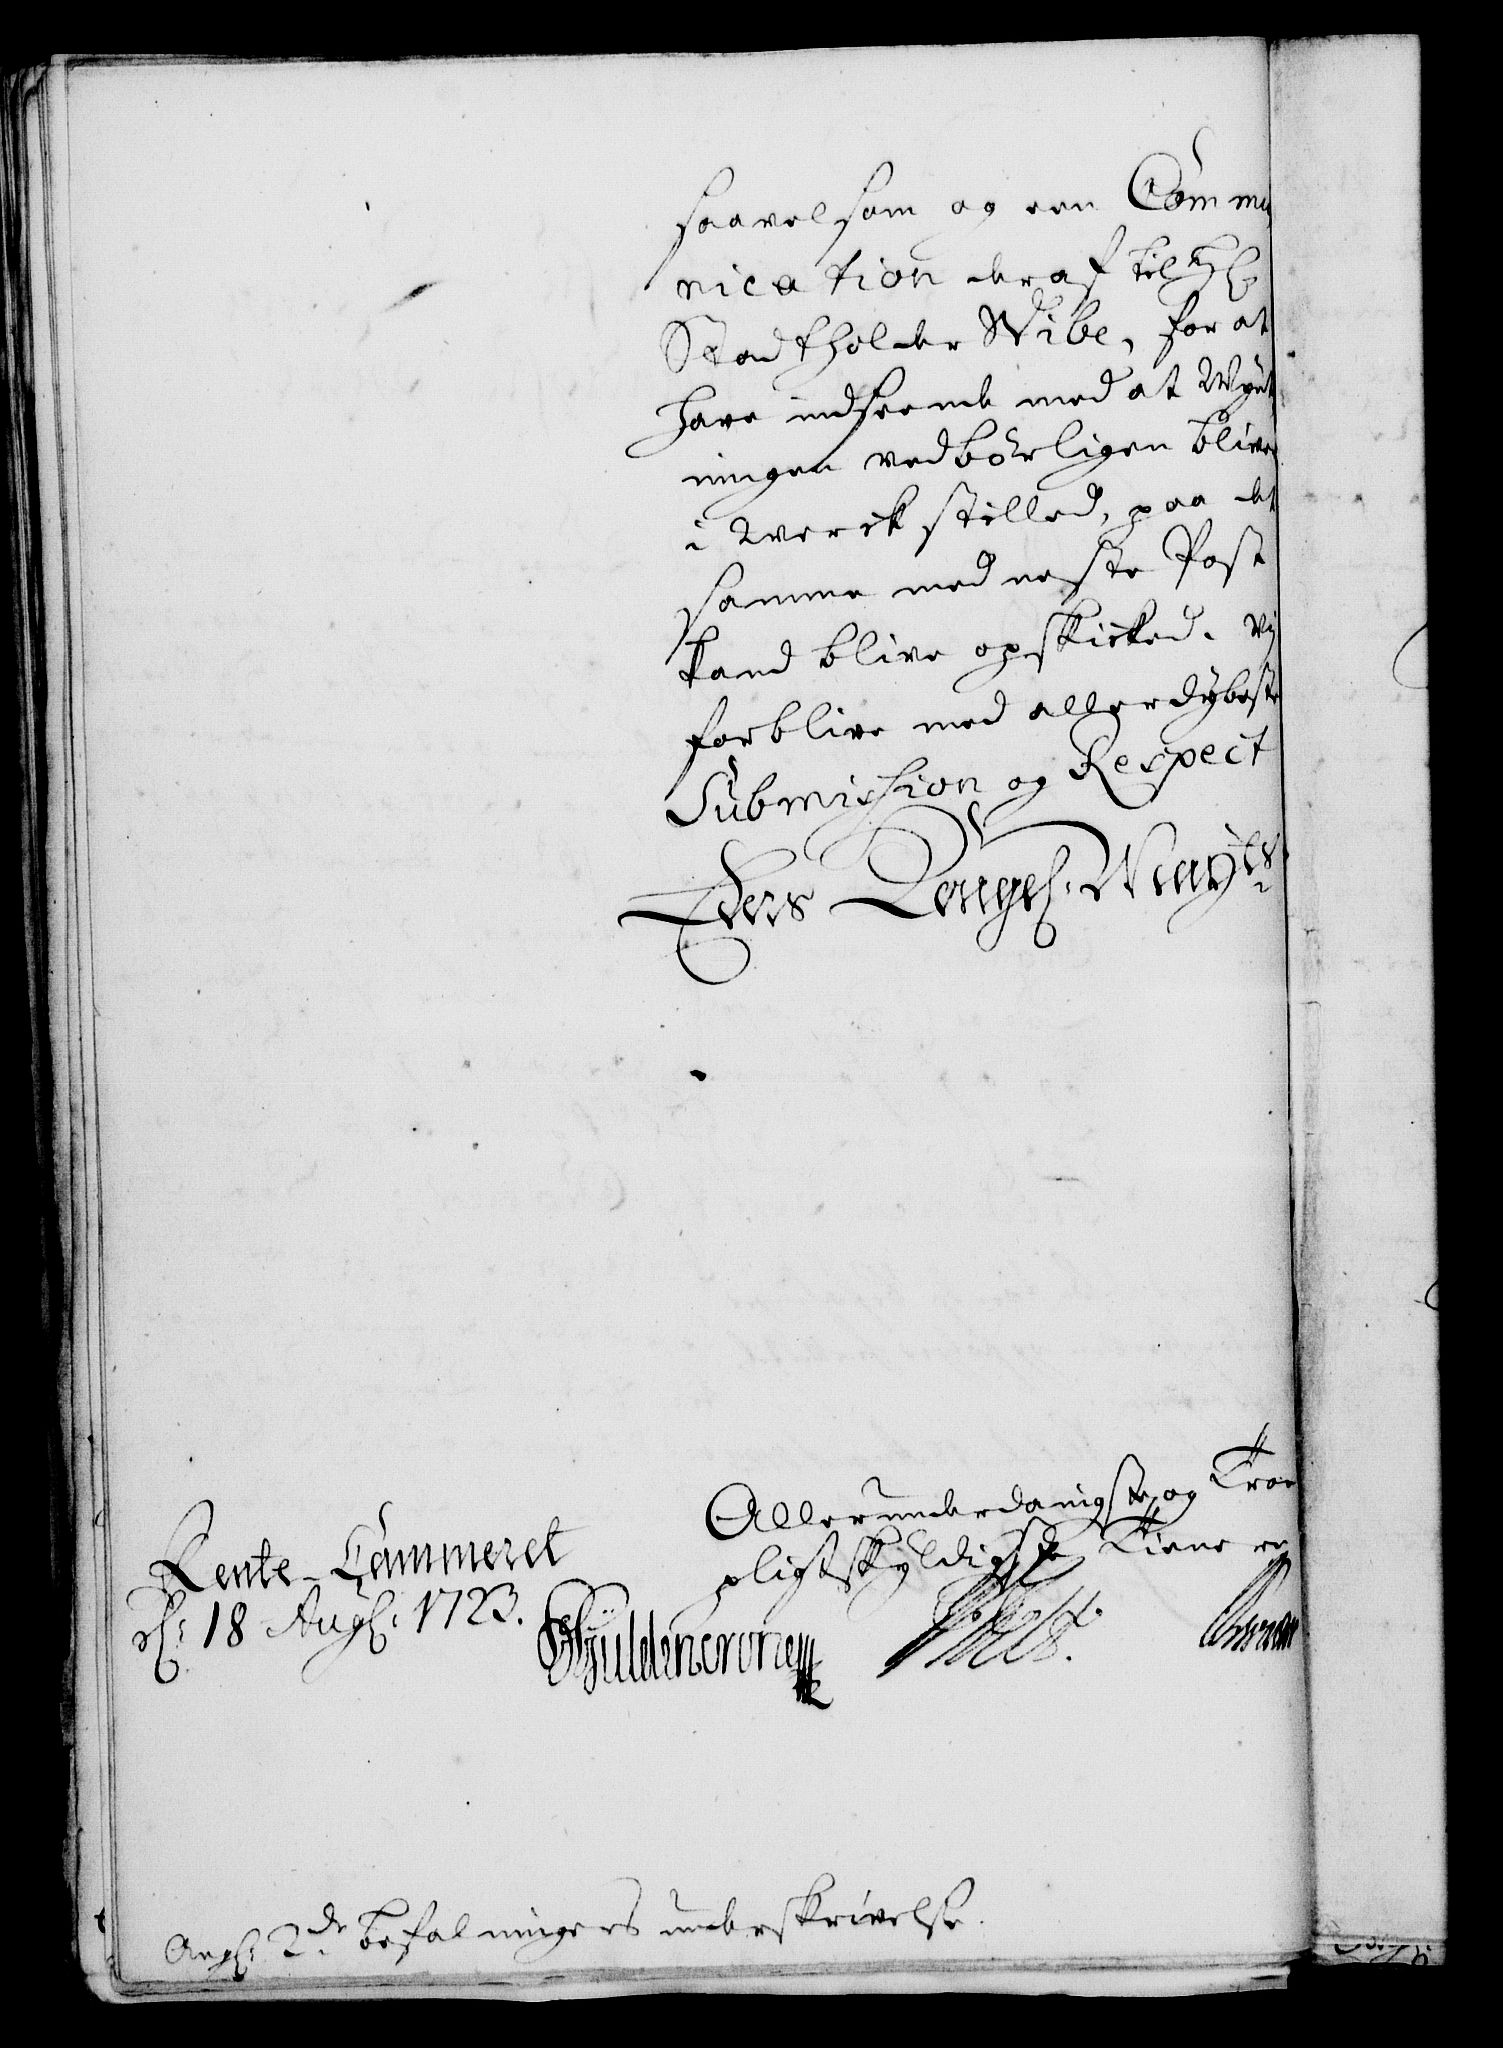 saavelsom og een Commu
nication deraf til Hr
Stadtholder Wibe, for at
have indseende med at Mynt
ningen vedbörligen bliver
i Werck stilled, paa det
samme med neste Post
kand blive opskicked. Vj
forblive med allerdybeste
Submission og Respect
Eders Kongel. Mayts
Allerunderdanigste og Troe
pligtskyldigste Tienere
Rente-Cammeret
d: 18 Aug: 1723.
Gÿldencrone
Ang: 2de befalningers underskrivelse.